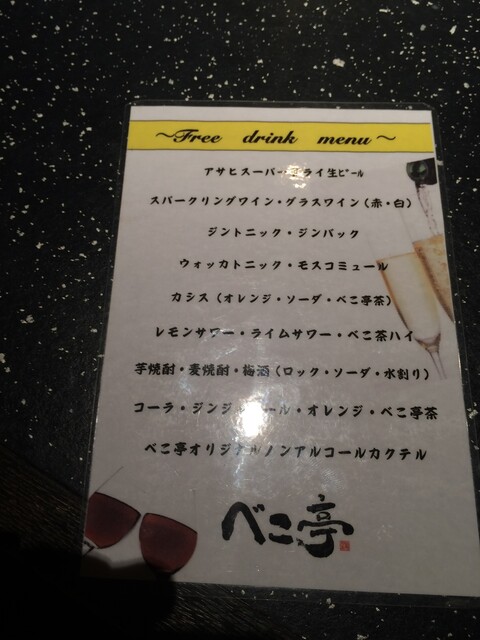 ～Free drink menu～
アサヒスーパードライ生ﾋﾞｰﾙ
スパークリングワイン・グラスワイン（赤・白）
ジントニック・ジンバック
ウォッカトニック・モスコミュール
カシス（オレンジ・ソーダ・べこ亭茶）
レモンサワー・ライムサワー・べこ茶ハイ
芋焼酎・麦焼酎・梅酒（ロック・ソーダ・水割り）
コーラ・ジンジャーエール・オレンジ・べこ亭茶
べこ亭オリジナルノンアルコールカクテル
べこ亭